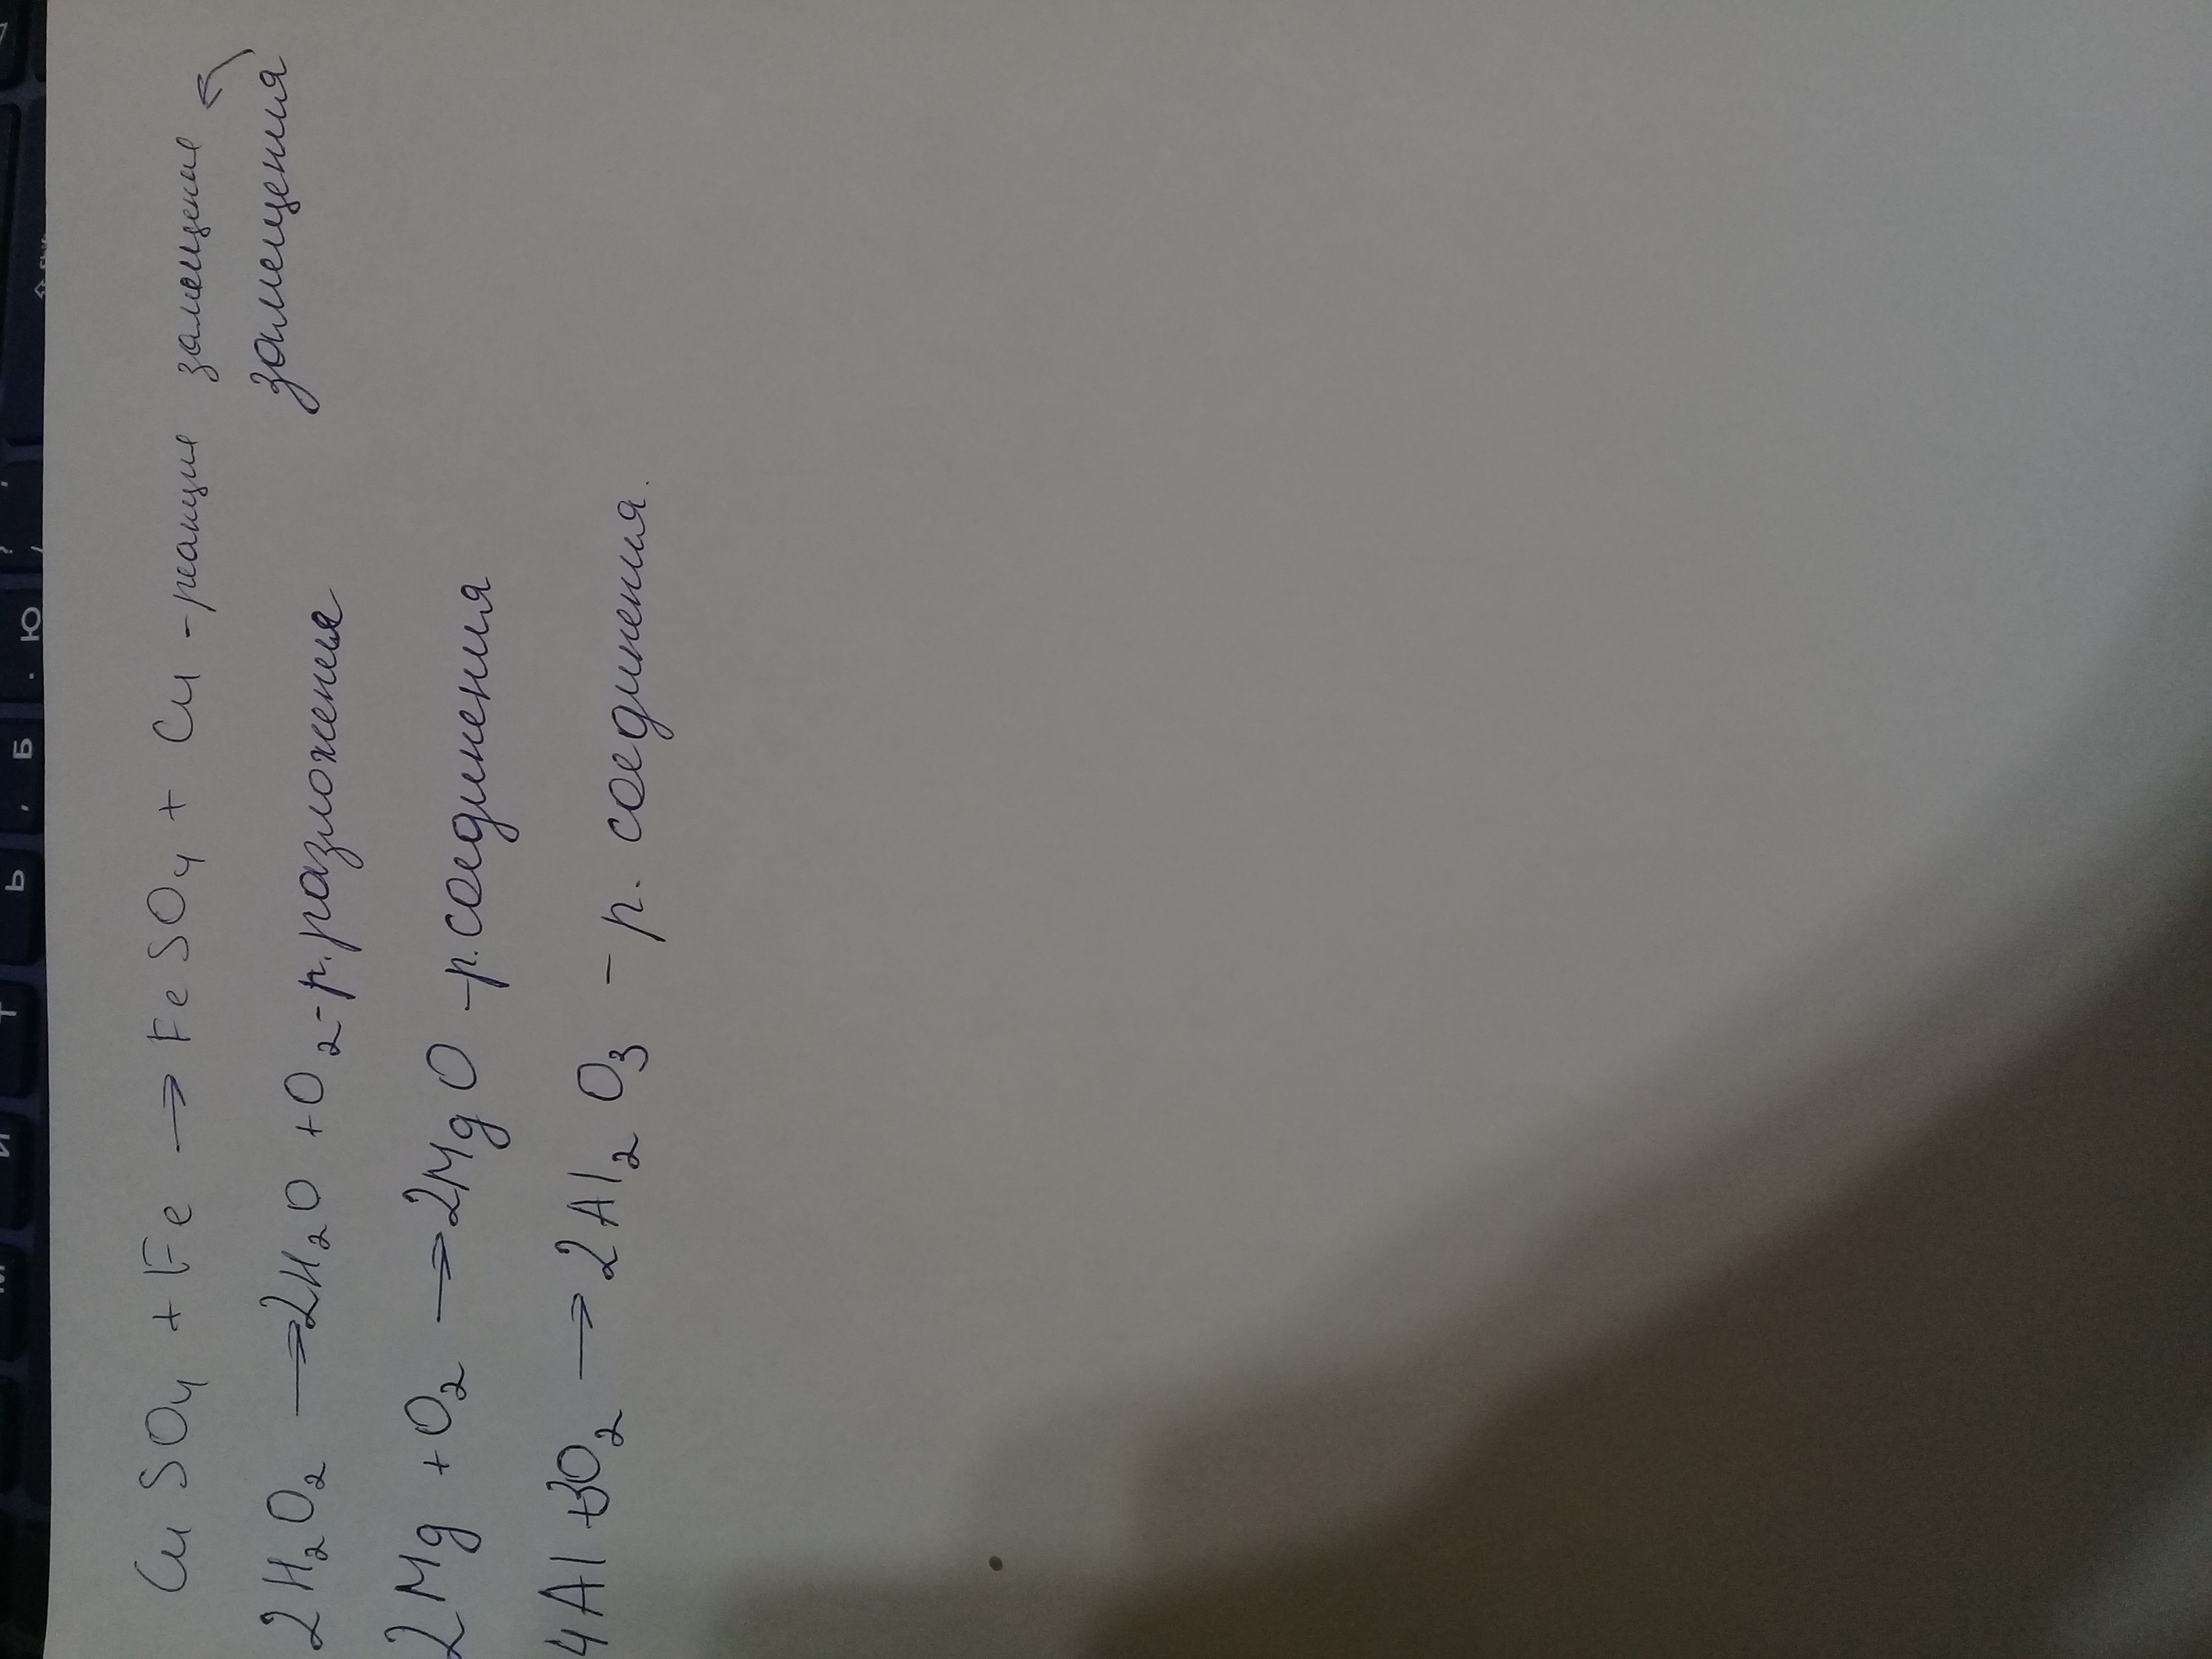 CuSO4 + Fe → FeSO4 + Cu - реакция замещения
замещения
2H2O2 → 2H2O + O2 - р. разложения
2Mg + O2 → 2MgO - р. соединения
4Al + 3O2 → 2Al2O3 - р. соединения.